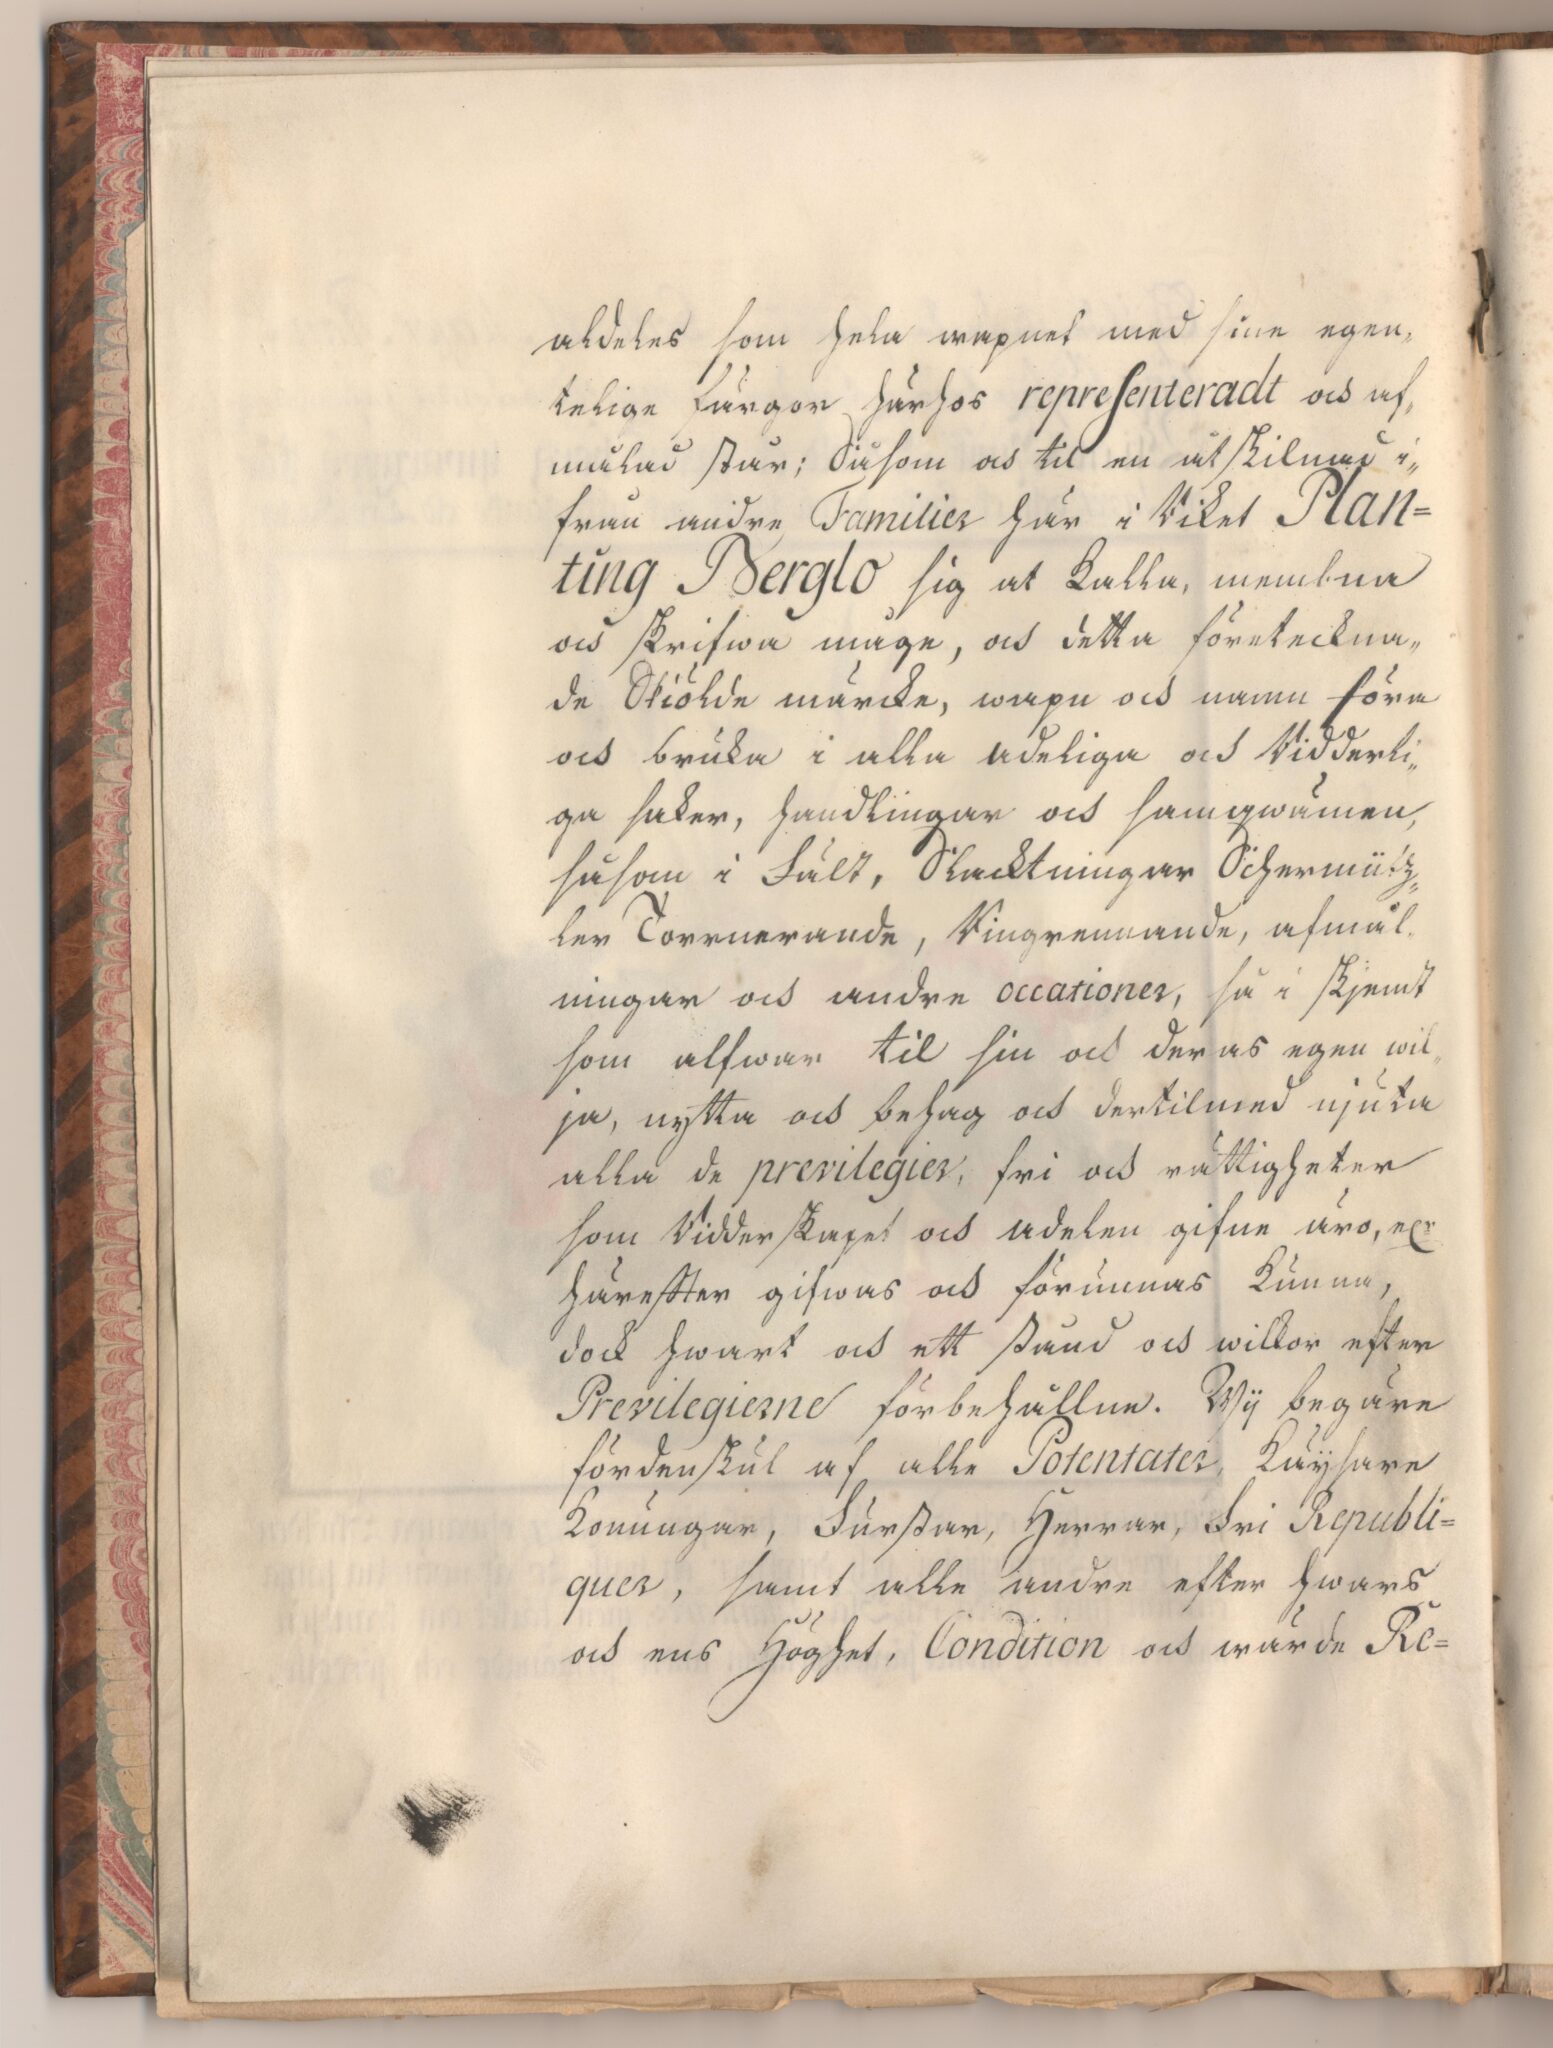 aldeles som hela wapnet med sine egen,,
telige färgor härhos representeradt och af,,
målad står; Såsom och til en åtskilnad i,,
från andre Familier här i Riket Plan=
ting Berglo sig at kalla, nembna
och skrifwa måge, och detta företeckna,,
de Skiölde märcke, wapn och namn föra
och bruka i alla adeliga och Ridderli,,
ga saker, handlingar och samqwämen,
såsom i Fält, Slacktningar Schermütz,,
ler Torrnerande, Ringrennande, afmål,,
ningar och andre occationer, så i skjemt
som alfwar til sin och deras egen wil,,
ja, nytta och behag och dertilmed njuta
alla de previlegier, fri och rättigheter
som Ridderskapet och adelen gifne äro, elr
härefter gifwas och förunnas kunna,
dock hwart och ett stånd och wilkor efter
Previlegierne förbehållne. Wij begäre
fördenskul af alle Potentater, Käysare
Konungar, Furstar, Herrar, Fri Republi=
quer, samt alle andre efter hwars
och ens Höghet, Condition och wärde Re=